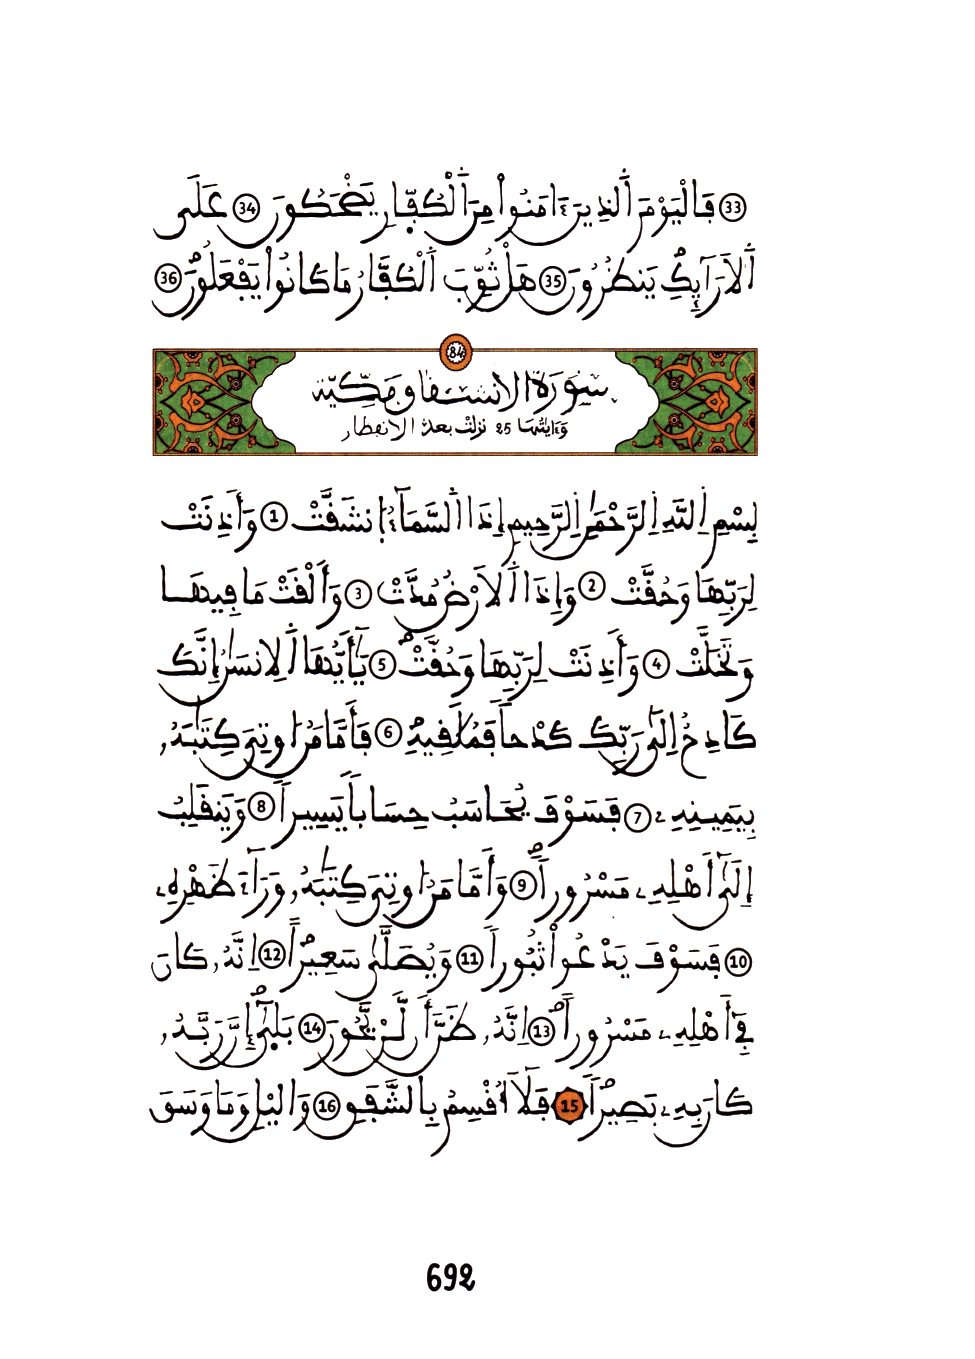 33 فَالْيَوْمَ اَلذِينَ ءَامَنُواْ مِنَ اَلْكُفّ۪ارِ يَضْحَكُونَ 34 عَلَى
اَلَارَآئِكِ يَنظُرُونَ 35 هَلْ ثُوِّبَ اَلْكُفَّارُ مَا كَانُواْ يَفْعَلُونَۖ 36
84
سُورَةُ الانشقاق مَكِّيَّة
وَءَايَاتُهَا 25 نزلت بعد الانفطار
بِسْمِ اِللَّهِ اِلرَّحْمَٰنِ اِلرَّحِيمِ إِذَا اَلسَّمَآءُ اُ۪نشَقَّتْ 1 وَأَذِنَتْ
لِرَبِّهَا وَحُقَّتْ 2 وَإِذَا اَلَارْضُ مُدَّتْ 3 وَأَلْقَتْ مَا فِيهَا
وَتَخَلَّتْ 4 وَأَذِنَتْ لِرَبِّهَا وَحُقَّتْۖ 5 يَٰٓأَيُّهَا اَلِانسَٰنُ إِنَّكَ
كَادِحٌ إِلَىٰ رَبِّكَ كَدْحاٗ فَمُلَٰقِيهِۖ 6 فَأَمَّا مَنُ ا۟وتِيَ كِتَٰبَهُۥ
بِيَمِينِهِۦ 7 فَسَوْفَ يُحَاسَبُ حِسَاباٗ يَسِيراٗ 8 وَيَنقَلِبُ
إِلَىٰٓ أَهْلِهِۦ مَسْرُوراٗۖ 9 وَأَمَّا مَنُ ا۟وتِيَ كِتَٰبَهُۥ وَرَآءَ ظَهْرِهِۦ
10 فَسَوْفَ يَدْعُواْ ثُبُوراٗ 11 وَيُصَلَّىٰ سَعِيراًۖ 12 اِنَّهُۥ كَانَ
فِےٓ أَهْلِهِۦ مَسْرُوراًۖ 13 اِنَّهُۥ ظَنَّ أَن لَّنْ يَّحُورَ 14 بَلَىٰٓۖ إِنَّ رَبَّهُۥ
كَانَ بِهِۦ بَصِيراٗۖ 15 فَلَآ أُقْسِمُ بِالشَّفَقِ 16 وَاليْلِ وَمَا وَسَقَ
692